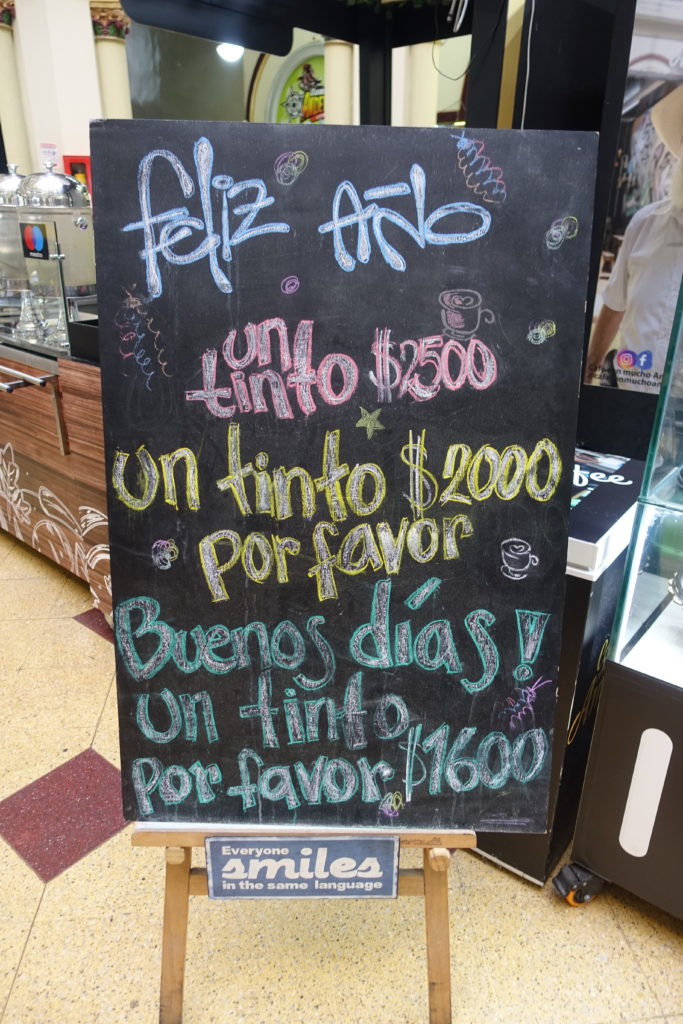 feliz Año
un
tinto $2500
un tinto $2000
por favor
Buenos días!
un tinto
por favor $1600
Everyone
smiles
in the same language